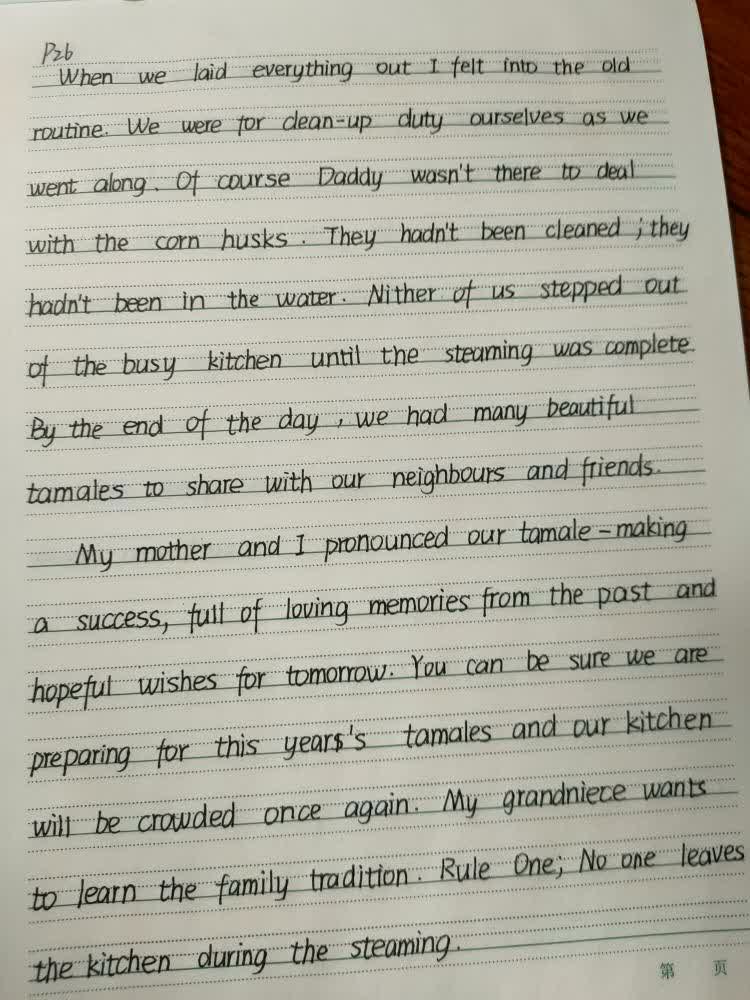 P26
When we laid everything out I felt into the old
routine. We were for clean-up duty ourselves as we
went along. Of course Daddy wasn't there to deal
with the corn husks. They hadn't been cleaned ; they
hadn't been in the water. Nither of us stepped out
of the busy kitchen until the steaming was complete.
By the end of the day , we had many beautiful
tamales to share with our neighbours and friends.
My mother and I pronounced our tamale-making
a success, full of loving memories from the past and
hopeful wishes for tomorrow. You can be sure we are
preparing for this years's tamales and our kitchen
will be crowded once again. My grandniece wants
to learn the family tradition. Rule One; No one leaves
the kitchen during the steaming.
第 页